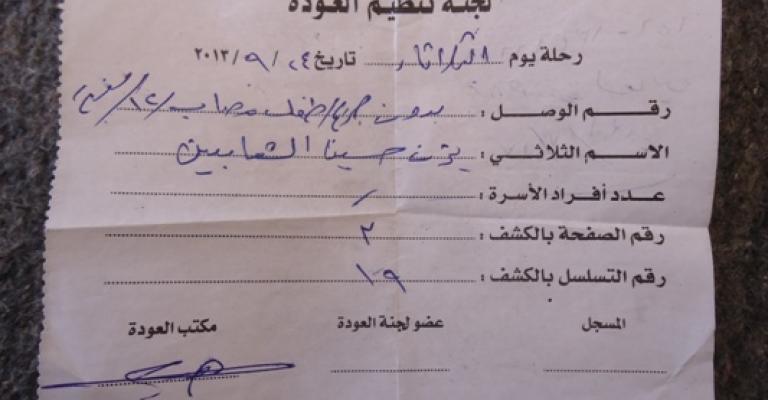 لجنة تنظيم العودة
رحلة يوم الثلاثاء تاريخ ٢٤/٩/٢٠١٣
رقم الوصل : بدون طفل مصاب/١٢/
الاسم الثلاثي : حسين الشعابين
عدد أفراد الأسرة : /
رقم الصفحة بالكشف : ٢
رقم التسلسل بالكشف : ١٩
المسجل عضو لجنة العودة مكتب العودة